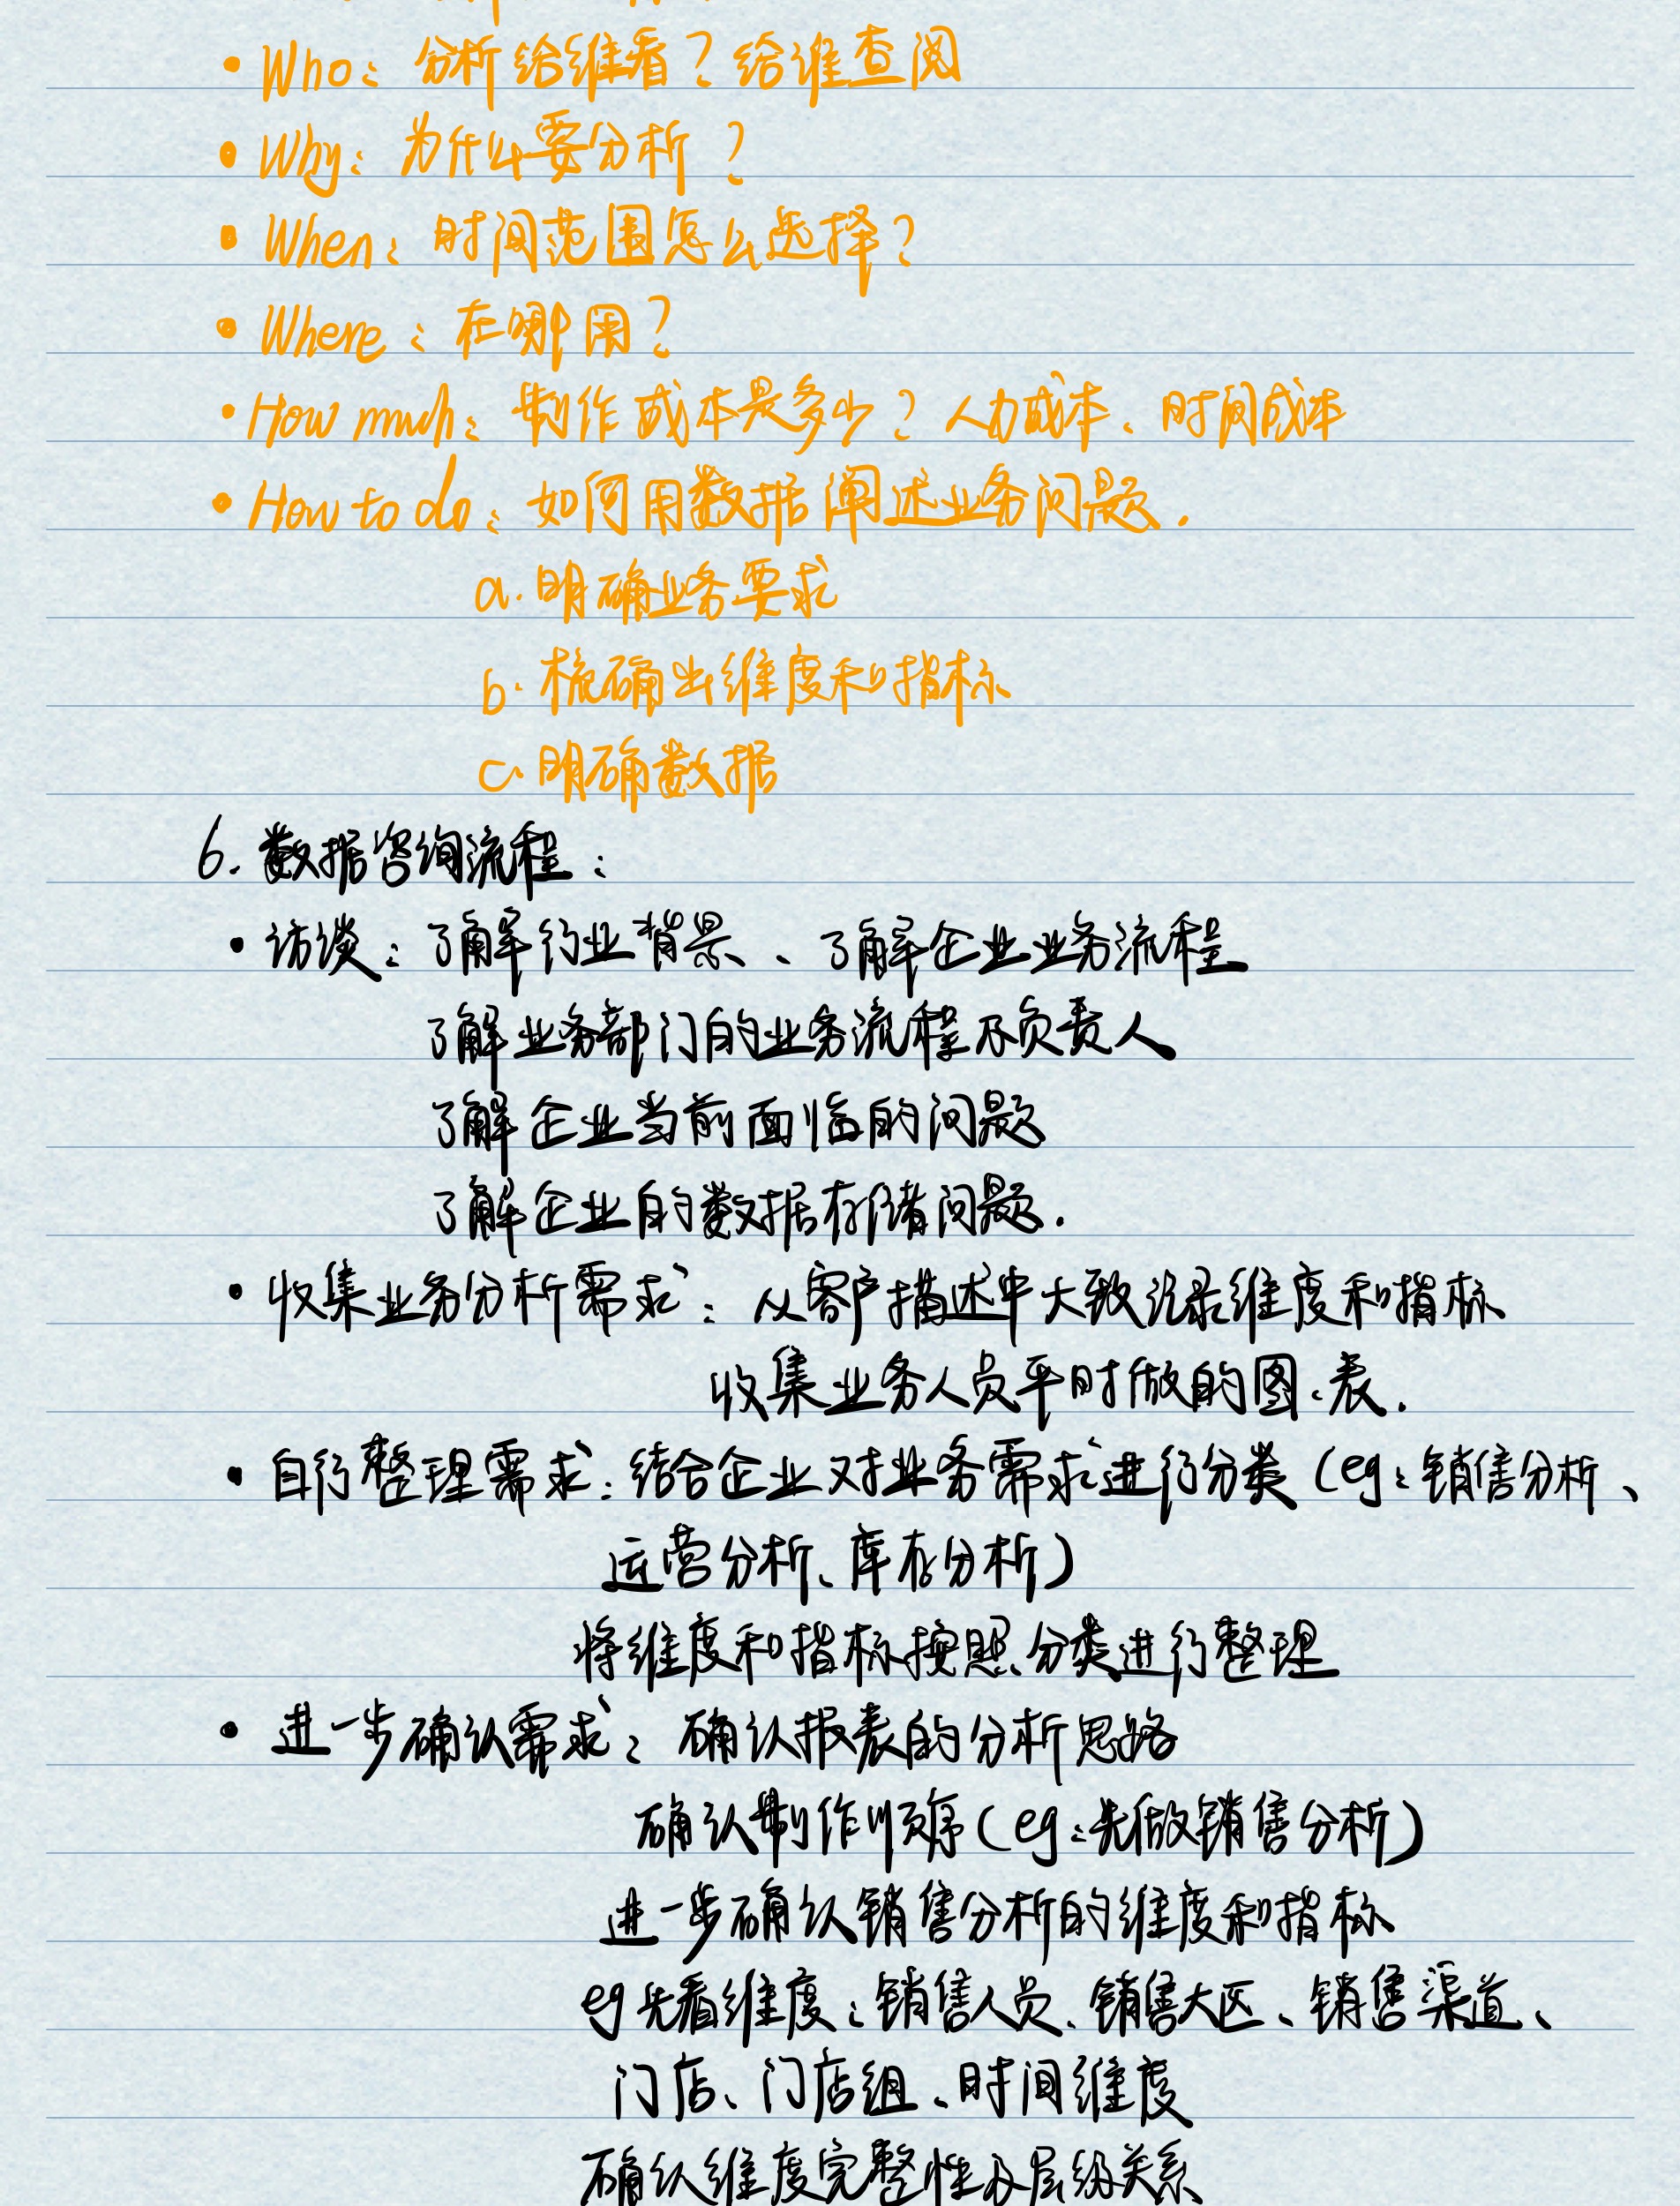 • Who: 分析给维看？给谁查阅
• Why: 为什么要分析？
• When: 时间范围怎么选择？
• Where: 在哪用？
• How much: 制作成本是多少？人力成本、时间成本
• How to do: 如何用数据阐述业务问题.
a. 明确业务要求
b. 梳确出维度和指标
c. 明确数据
6. 数据咨询流程:
• 访谈: 了解行业背景、了解企业业务流程
了解业务部门的业务流程及负责人
了解企业当前面临的问题
了解企业的数据存储问题.
• 收集业务分析需求: 从客户描述中大致记录维度和指标
收集业务人员平时做的图、表.
• 自行整理需求: 结合企业对业务需求进行分类 (eg: 销售分析、
运营分析、库存分析)
将维度和指标按照分类进行整理
• 进一步确认需求: 确认报表的分析思路
确认制作顺序 (eg: 先做销售分析)
进一步确认销售分析的维度和指标
eg 先看维度: 销售人员、销售大区、销售渠道、
门店、门店组、时间维度
确认维度完整性及层级关系